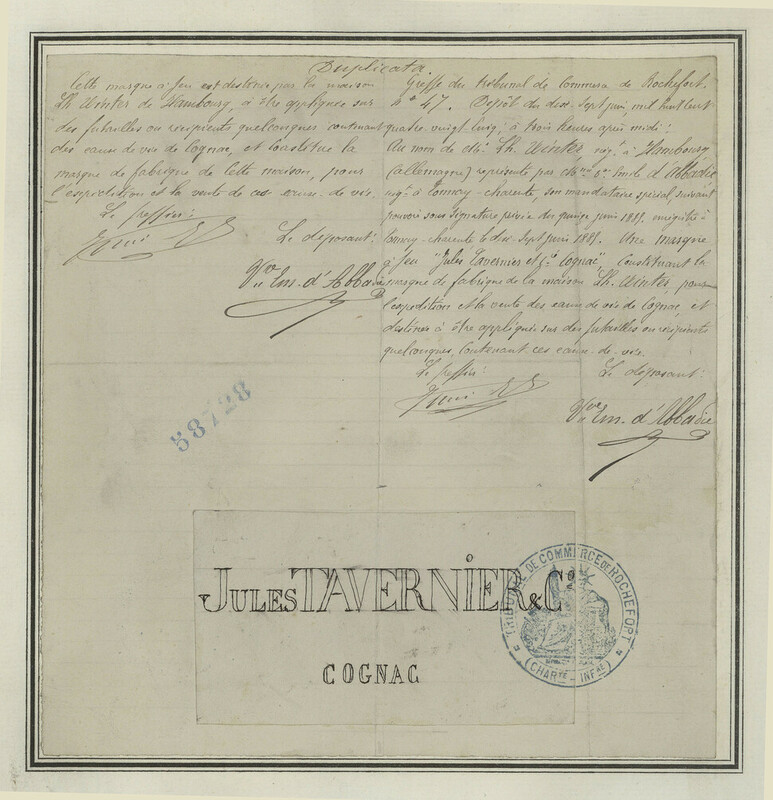 Duplicata
Cette marque à feu est destinée par la maison
Th. Winter de Hambourg, à être appliquée sur
des futailles ou récipients quelconques contenant
des eaux de vie de Cognac, et constitue la
marque de fabrique de cette maison, pour
l'expédition et la vente de ces eaux de vie.
Le greffier:
Le déposant:
Vve Em. d'Abbadie
Greffe du tribunal de Commerce de Rochefort.
N° 47. Dépôt du dix sept juin, mil huit cent
quatre vingt cinq, à trois heures après midi:
Au nom de Th. Winter négt à Hambourg
(allemagne) représenté par Emile d'Abbadie
négt à Tonnay-charente, son mandataire spécial, suivant
pouvoir sous signature privée du quinze juin 1885, enregistré à
Tonnay-charente le dix sept juin 1885. Une marque
à feu "Jules Tavernier et Cie Cognac", Constituant la
marque de fabrique de la maison Th. Winter, pour
l'expédition et la vente des eaux de vie de Cognac, et
destinée à être appliquée sur des futailles ou récipients
quelconques, contenant ces eaux-de-vie.
Le greffier:
Le déposant:
Vve Em. d'Abbadie
58728
JULES TAVERNIER & Co
COGNAC
TRIBUNAL DE COMMERCE DE ROCHEFORT
(CHARTE - INFRE)